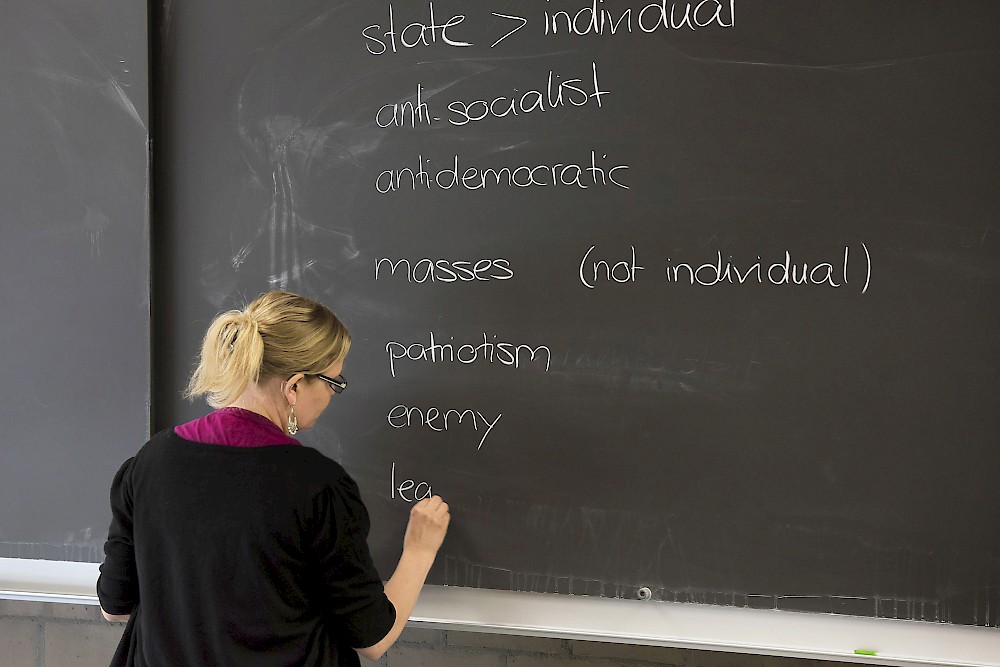 state > individual
anti-socialist
antidemocratic
masses (not individual)
patriotism
enemy
lea